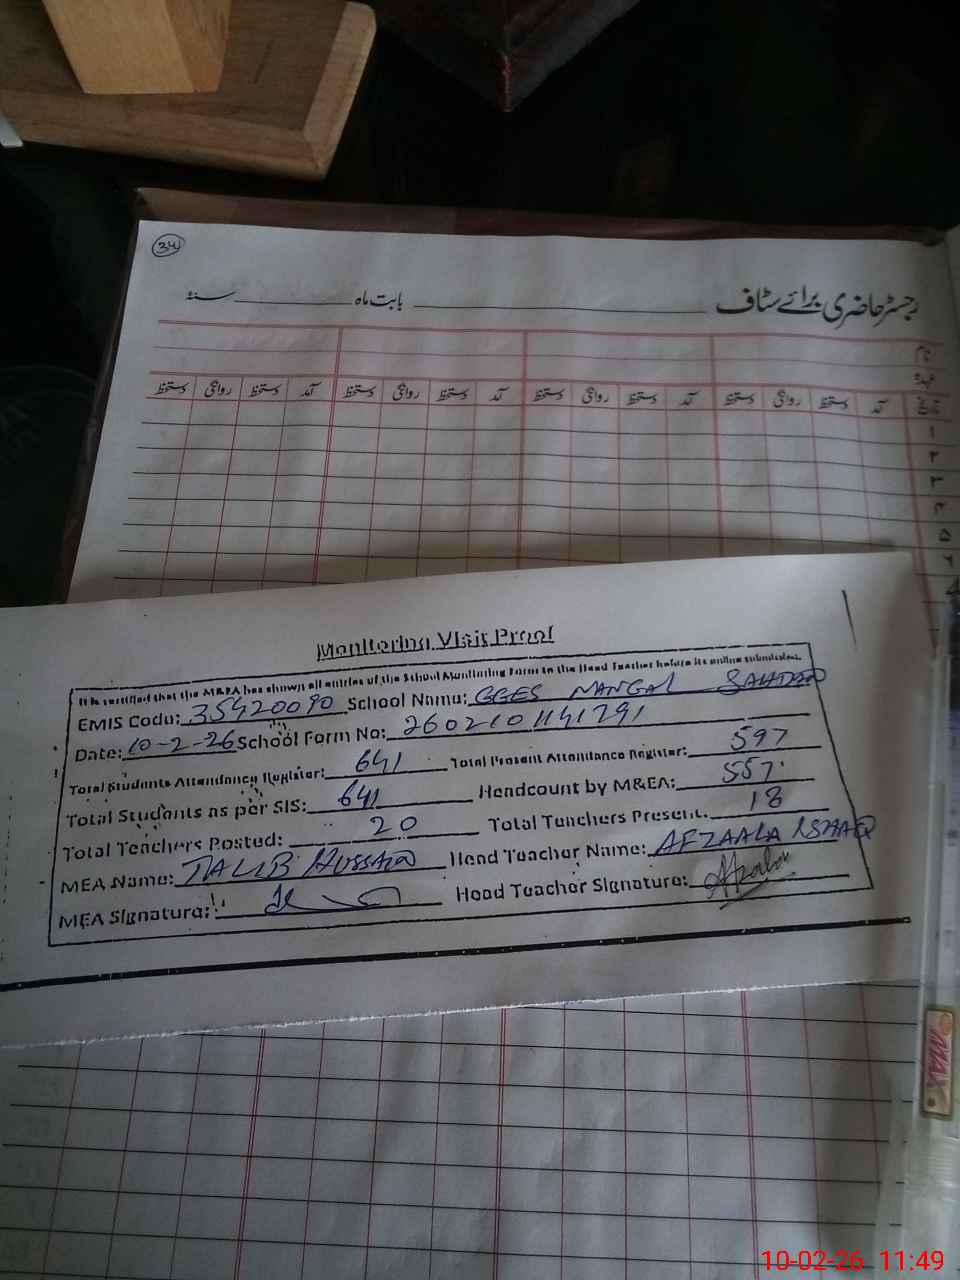 34
رجسٹر حاضری برائے سٹاف ________ بابت ماہ ________ سنہ
نام
عہدہ
تاریخ آمد دستخط روانگی دستخط آمد دستخط روانگی دستخط آمد دستخط روانگی دستخط آمد دستخط روانگی دستخط
۱
۲
۳
۴
۵
۶
Monitoring Visit Proof
It is certified that the M&EA has shown all entries of the School Monitoring Form to the Head Teacher before its online submission.
EMIS Code: 35420090 School Name: GGES MANGAL SAHDAN
Date: 10-2-26 School Form No:
Total Students Attendance Register: 641 Total Present Attendance Register: 597
Total Students as per SIS: 641 Headcount by M&EA: 557
Total Teachers Posted: 20 Total Teachers Present: 18
MEA Name: TALIB HUSSAIN Head Teacher Name: AFZAALA ISHAQ
MEA Signature: Head Teacher Signature:
MAX
10-02-26 11:49